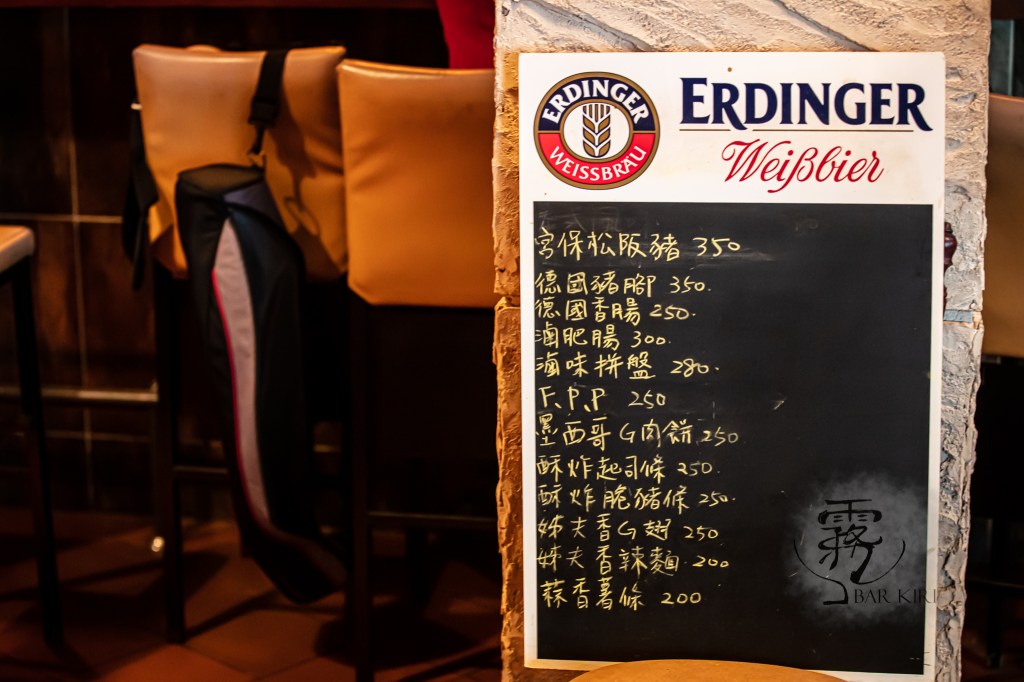 ERDINGER
WEISSBRÄU
ERDINGER
Weißbier
宮保松阪豬 350
德國豬腳 350.
德國香腸 250.
滷肥腸 300.
滷味拼盤 280.
F.P.P 250
墨西哥G肉餅 250
酥炸起司條 250.
酥炸脆豬條 250.
姊夫香G翅 250
姊夫香辣麵 200
蒜香薯條 200
霧
BAR KIRI